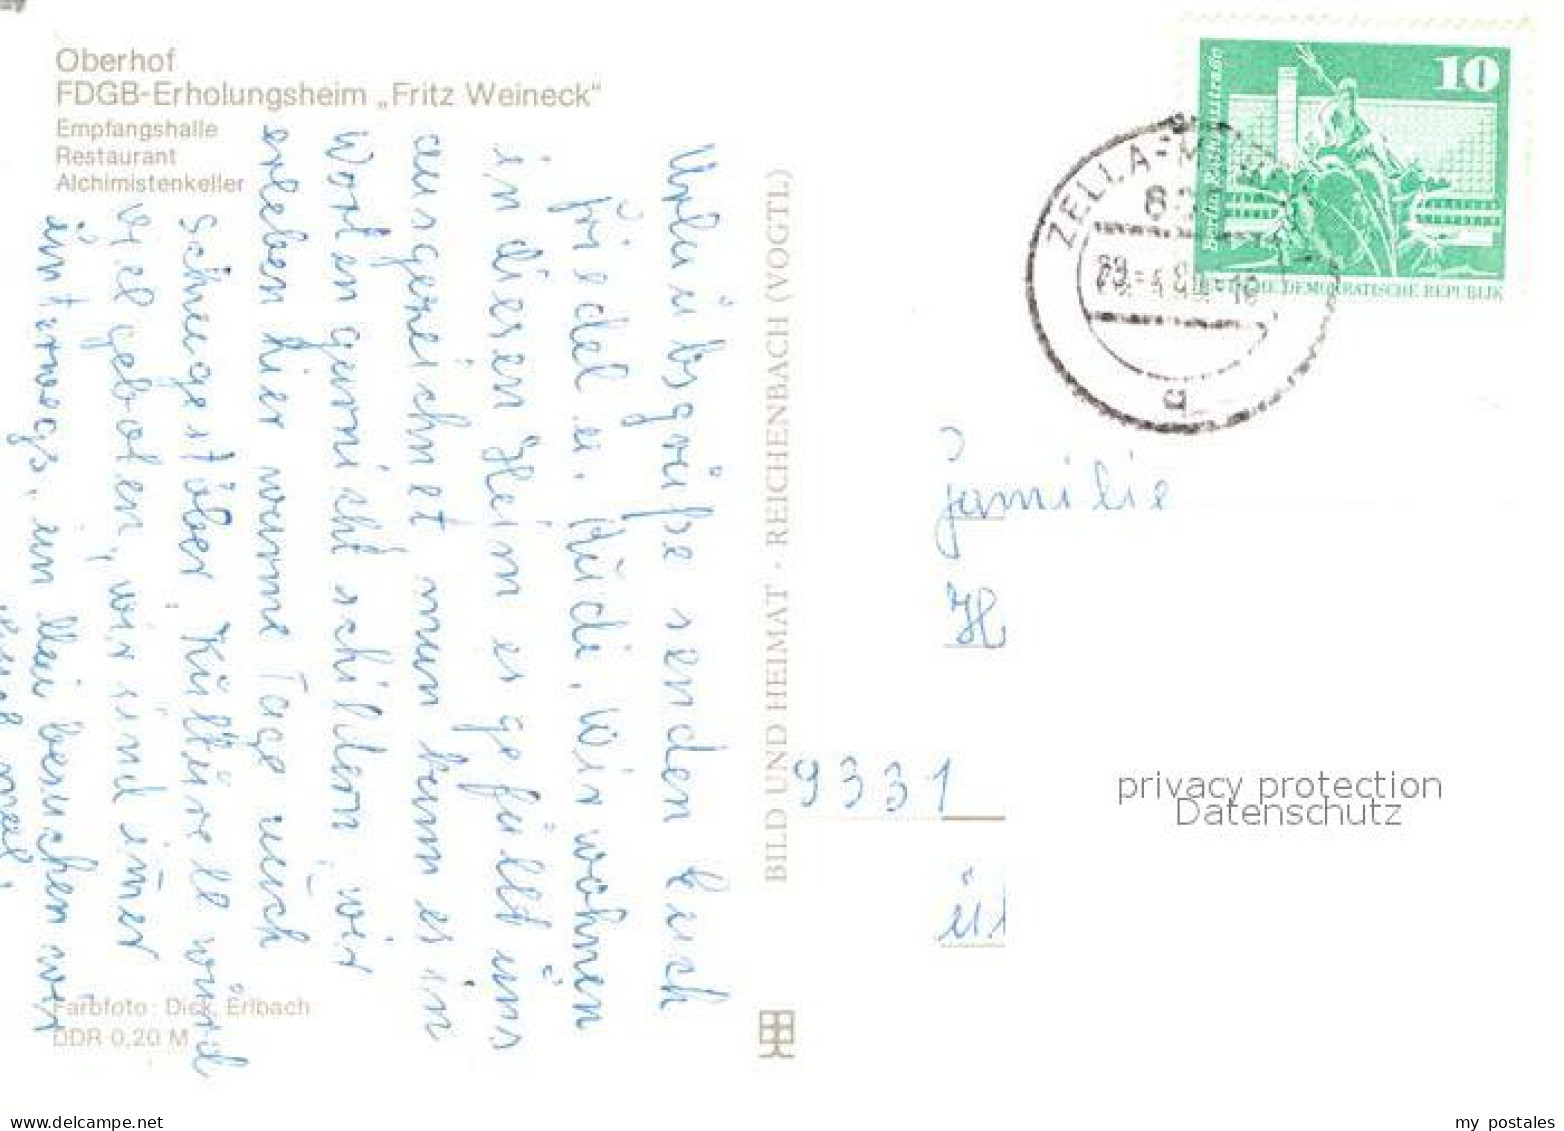 Oberhof
FDGB-Erholungsheim „Fritz Weineck“
Empfangshalle
Restaurant
Alchimistenkeller
Urlaubsgrüße senden Euch
Friedel u. Rudi, Wir wohnen
in diesen Heim es gefällt uns
ausgereichnet man kann es in
Worten garnicht schildern, wir
erleben hier warme Tage auch
Schneegestöber. Kulturell wird
viel geboten, wir sind imer
unterwegs. im Mai besuchen wir
Euch mal.
Farbfoto: Dick, Erlbach
DDR 0,20 M
BILD UND HEIMAT · REICHENBACH (VOGTL)
10
Berlin Rathausstraße
DEMOKRATISCHE REPUBLIK
ZELLA-M
Familie
H
9331
privacy protection
Datenschutz
www.delcampe.net
my_postales